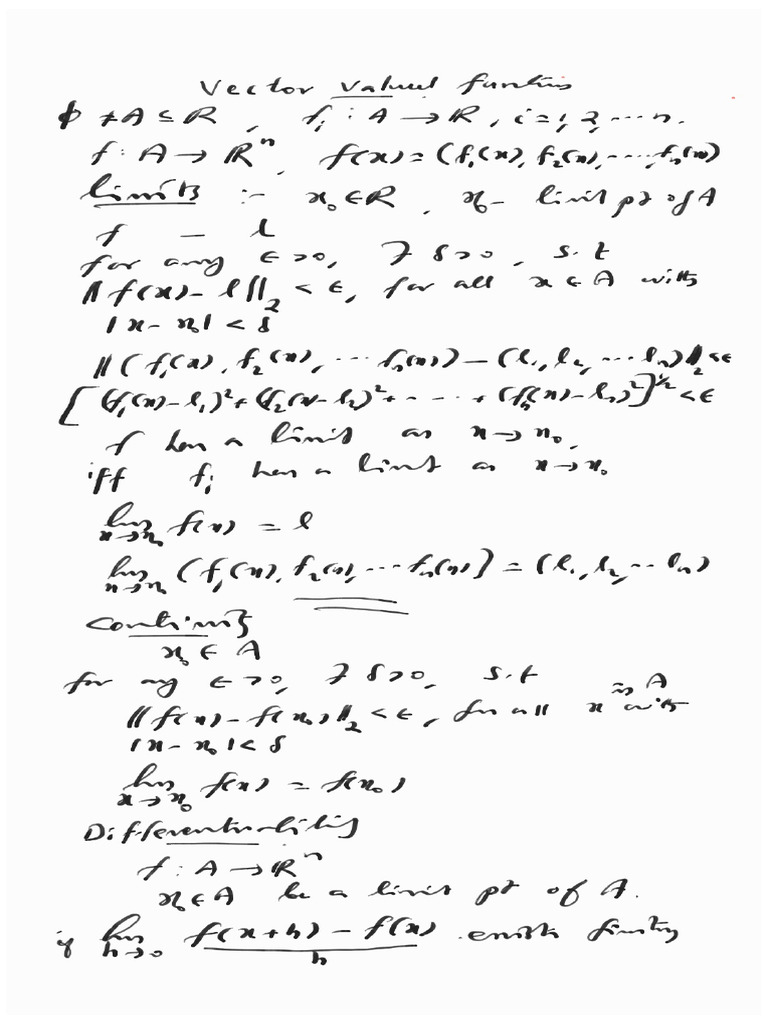 Vector valued functions
ϕ ≠ A ⊆ ℝ, f_i : A → ℝ, i = 1, 2, ... n.
f : A → ℝ^n, f(x) = (f_1(x), f_2(x), ..., f_n(x))
limits :- x_0 ∈ ℝ, x_0 - limit pt of A
f — l
for any ϵ > 0, ∃ δ > 0, s.t
||f(x) - l||_2 < ϵ, for all x ∈ A with
|x - x_0| < δ
||(f_1(x), f_2(x), ... f_n(x)) - (l_1, l_2, ... l_n)||_2 < ϵ
[(f_1(x) - l_1)^2 + (f_2(x) - l_2)^2 + - - - + (f_n(x) - l_n)^2]^{1/2} < ϵ
f has a limit as x → x_0,
iff f_i has a limit as x → x_0
lim_{x→x_0} f(x) = l
lim_{x→x_0} (f_1(x), f_2(x), ... f_n(x)) = (l_1, l_2, ... l_n)
Continuity
x_0 ∈ A
for any ϵ > 0, ∃ δ > 0, s.t
||f(x) - f(x_0)||_2 < ϵ, for all x in A with
|x - x_0| < δ
lim_{x→x_0} f(x) = f(x_0)
Differentiability
f : A → ℝ^n
x_0 ∈ A be a limit pt of A.
if lim_{h→0} \frac{f(x+h) - f(x)}{h} exists finitely